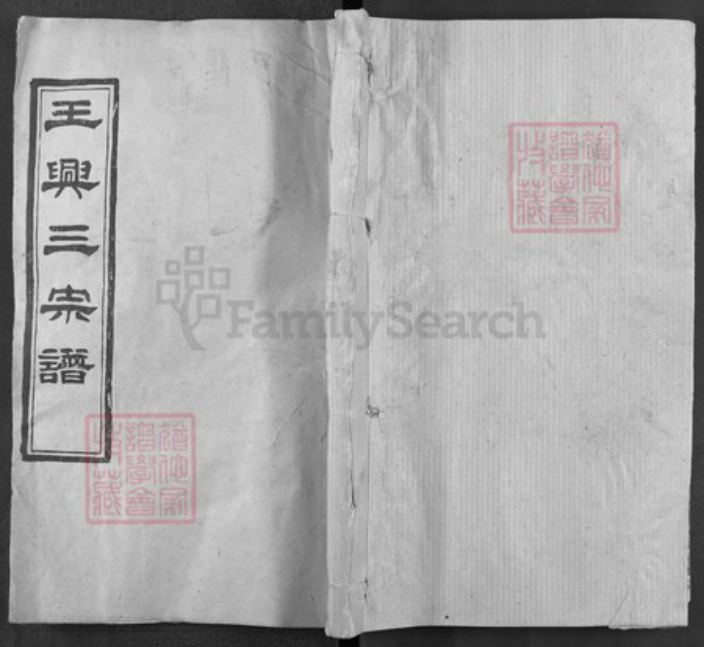 王興三宗譜
FamilySearch
猶他家
譜學會
收藏
猶他家
譜學會
收藏